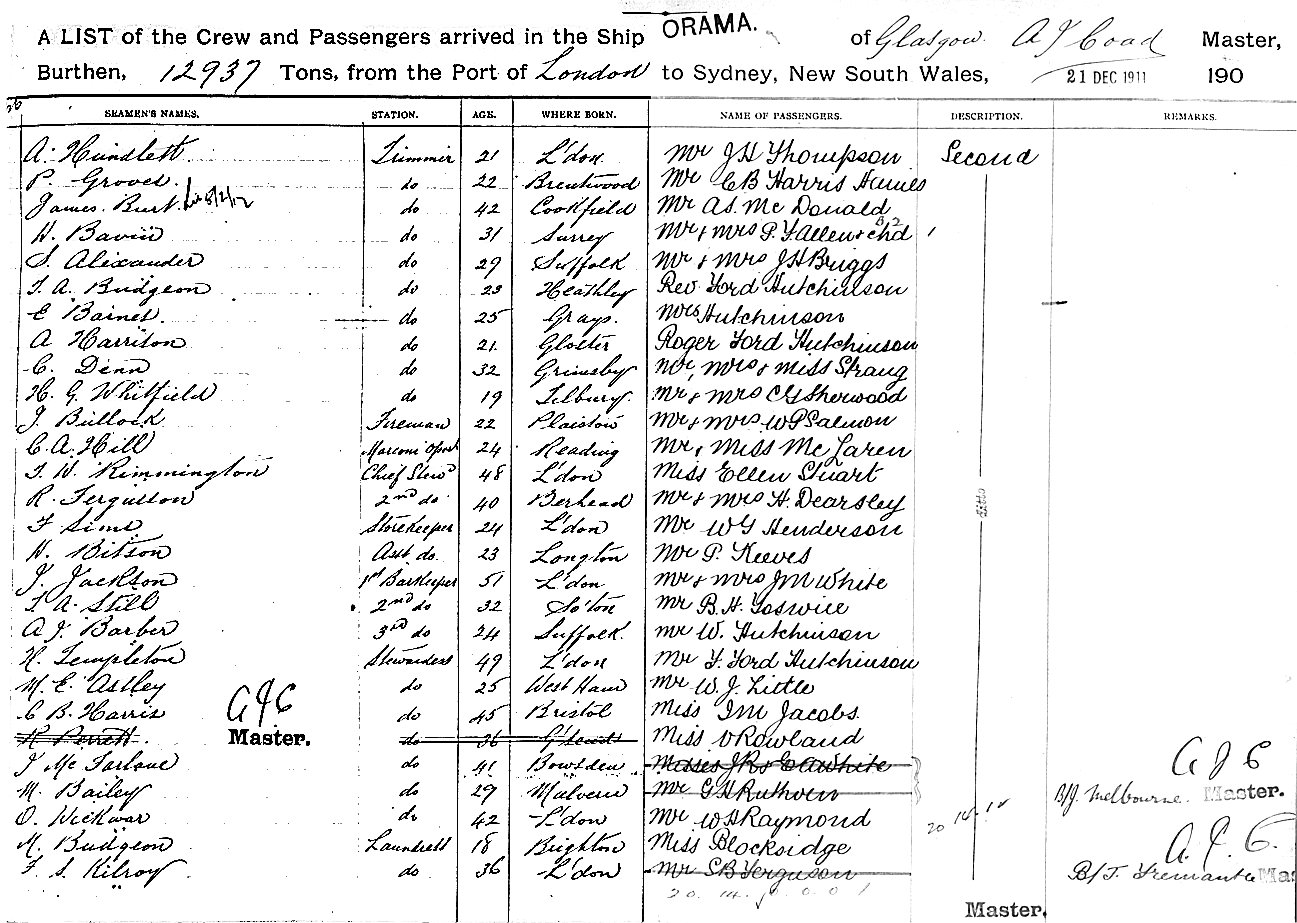 A LIST of the Crew and Passengers arrived in the Ship ORAMA. of Glasgow. A J Coad Master,
Burthen, 12937 Tons, from the Port of London to Sydney, New South Wales, 21 DEC 1911 190
SEAMEN'S NAMES. STATION. AGE. WHERE BORN. NAME OF PASSENGERS. DESCRIPTION. REMARKS.
A. Hundlett Trimmer 21 L'don. Mr J H Thompson Second
P. Groves. do 22 Brentwood Mr C B Harris Humes
James. Burt. do 42 Cookfield Mr A S. Mc Donald
H. Bavin do 31 Surrey Mr & Mrs P. Y Allen & Chd
S. Alexander do 29 Suffolk Mr & Mrs J H Briggs
T. A. Budgeon do 23 Heathley Rev Ford Hutchinson
E Baines. do 25 Grays. Mrs Hutchinson
A Harrison do 21. Gloster Roger Ford Hutchinson
C. Denn do 32 Grimsby Mr, Mrs & Miss Strang
H. G. Whitfield do 19 Tilbury. Mr & Mrs C G Sherwood
J. Bullock Fireman 22 Plaistow Mr & Mrs W P Salmon
C. A. Hill Marconi Oport 24 Reading Mr & Miss Mc Laren
T. W. Rimmington Chief Stewd 48 L'don Miss Ellen Stuart
R. Fergusson 2nd do 40 B'erhead Mr & Mrs H. Dearsley
F Sims Storekeeper 24 L'don Mr W G Henderson
H. Bitson Asst do. 23 Longton Mr P. Keeves
J. Jackson 1st Barkeeper 51 L'don Mr & Mrs J M White
T. A. Still 2nd do 32 So'ton Mr B. H.
A J. Barber 3rd do 24 Suffolk. Mr W. Hutchinson
H. Templeton Stewardess 49 L'don Mr F. Ford Hutchinson
M. E. Astley do 25 West Ham Mr W. J. Little
C B. Harris do 45 Bristol Miss I M Jacobs.
A J C
Master.
H Perrett do 36 G'send Miss V Rowland
J Mc Farlane do 41 Bowsden Misses J R & E A White
M. Bailey do 29 Malvern Mr G H Ruthven B/J. Melbourne. A J C Master.
O. Wickwar do 42 L'don Mr W A Raymond 20 14. 1
M. Budgeon Laundress 18 Brighton Miss Blocksidge A. J. C.
F. S. Kilroy do 36 L'don Mr S B Ferguson B/J. Fremantle Mas
ditto
20. 14. 0. 0. 1
Master.